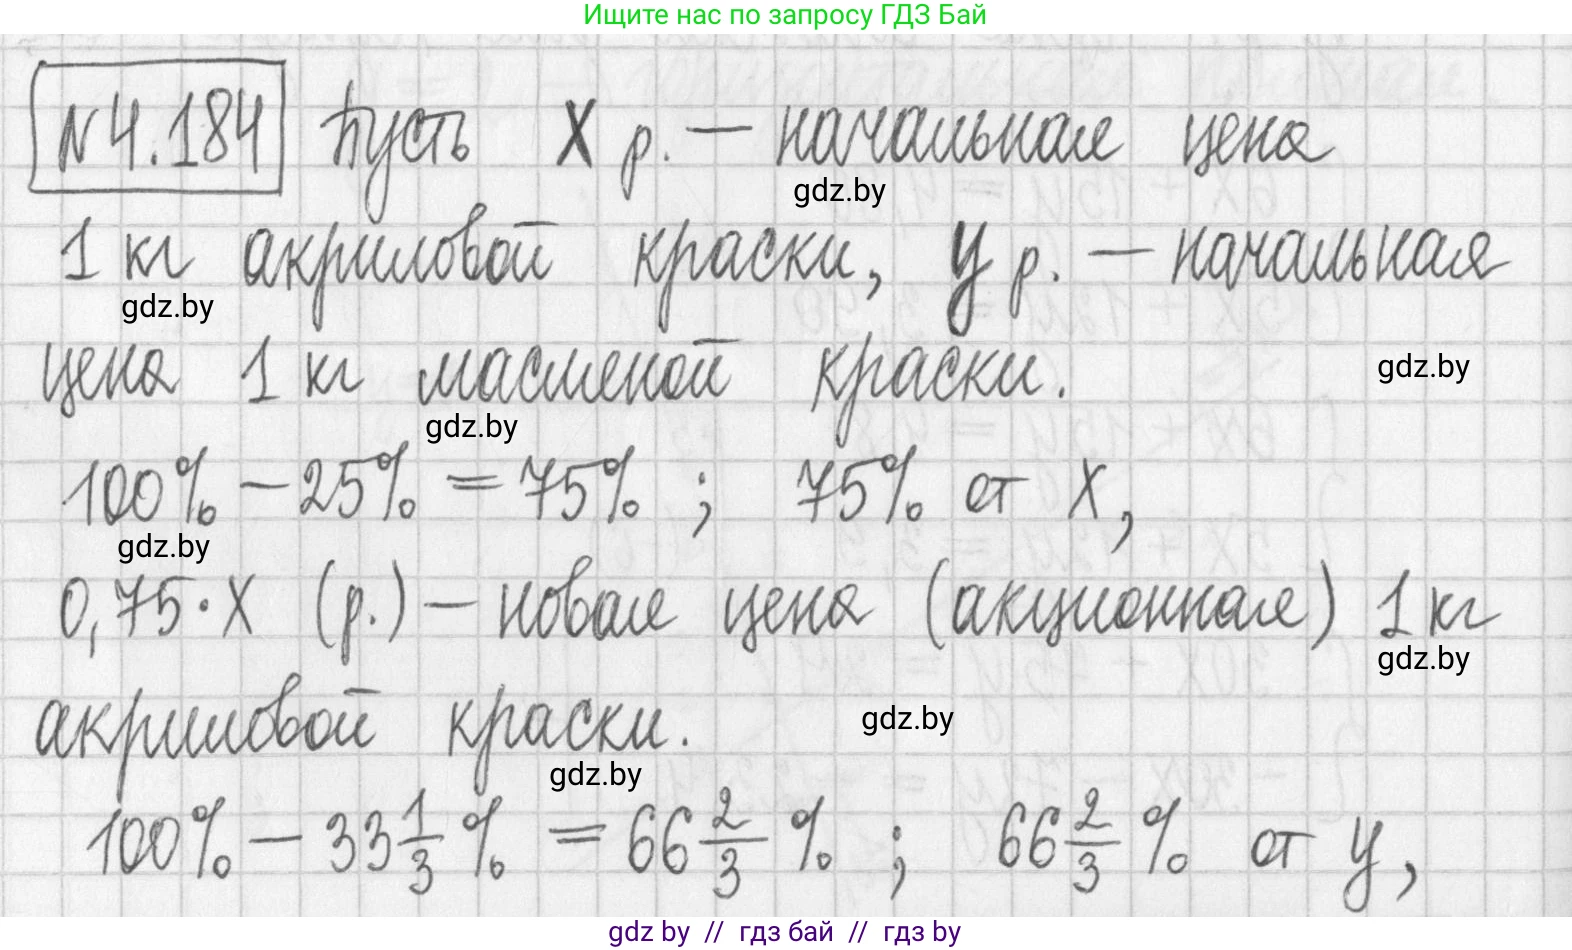 Ищите нас по запросу ГДЗ Бай
N 4.184 Пусть x р. — начальная цена
gdz.by
1 кг акриловой краски, y р. — начальная
gdz.by
цена 1 кг масленой краски.
gdz.by
gdz.by
100% – 25% = 75% ; 75% от x,
gdz.by
0,75·x (р.) – новая цена (акционная) 1 кг
gdz.by
акриловой краски.
gdz.by
gdz.by
100% – 33 1/3 % = 66 2/3 % ; 66 2/3 % от y,
gdz by // гдз бай // гдз by